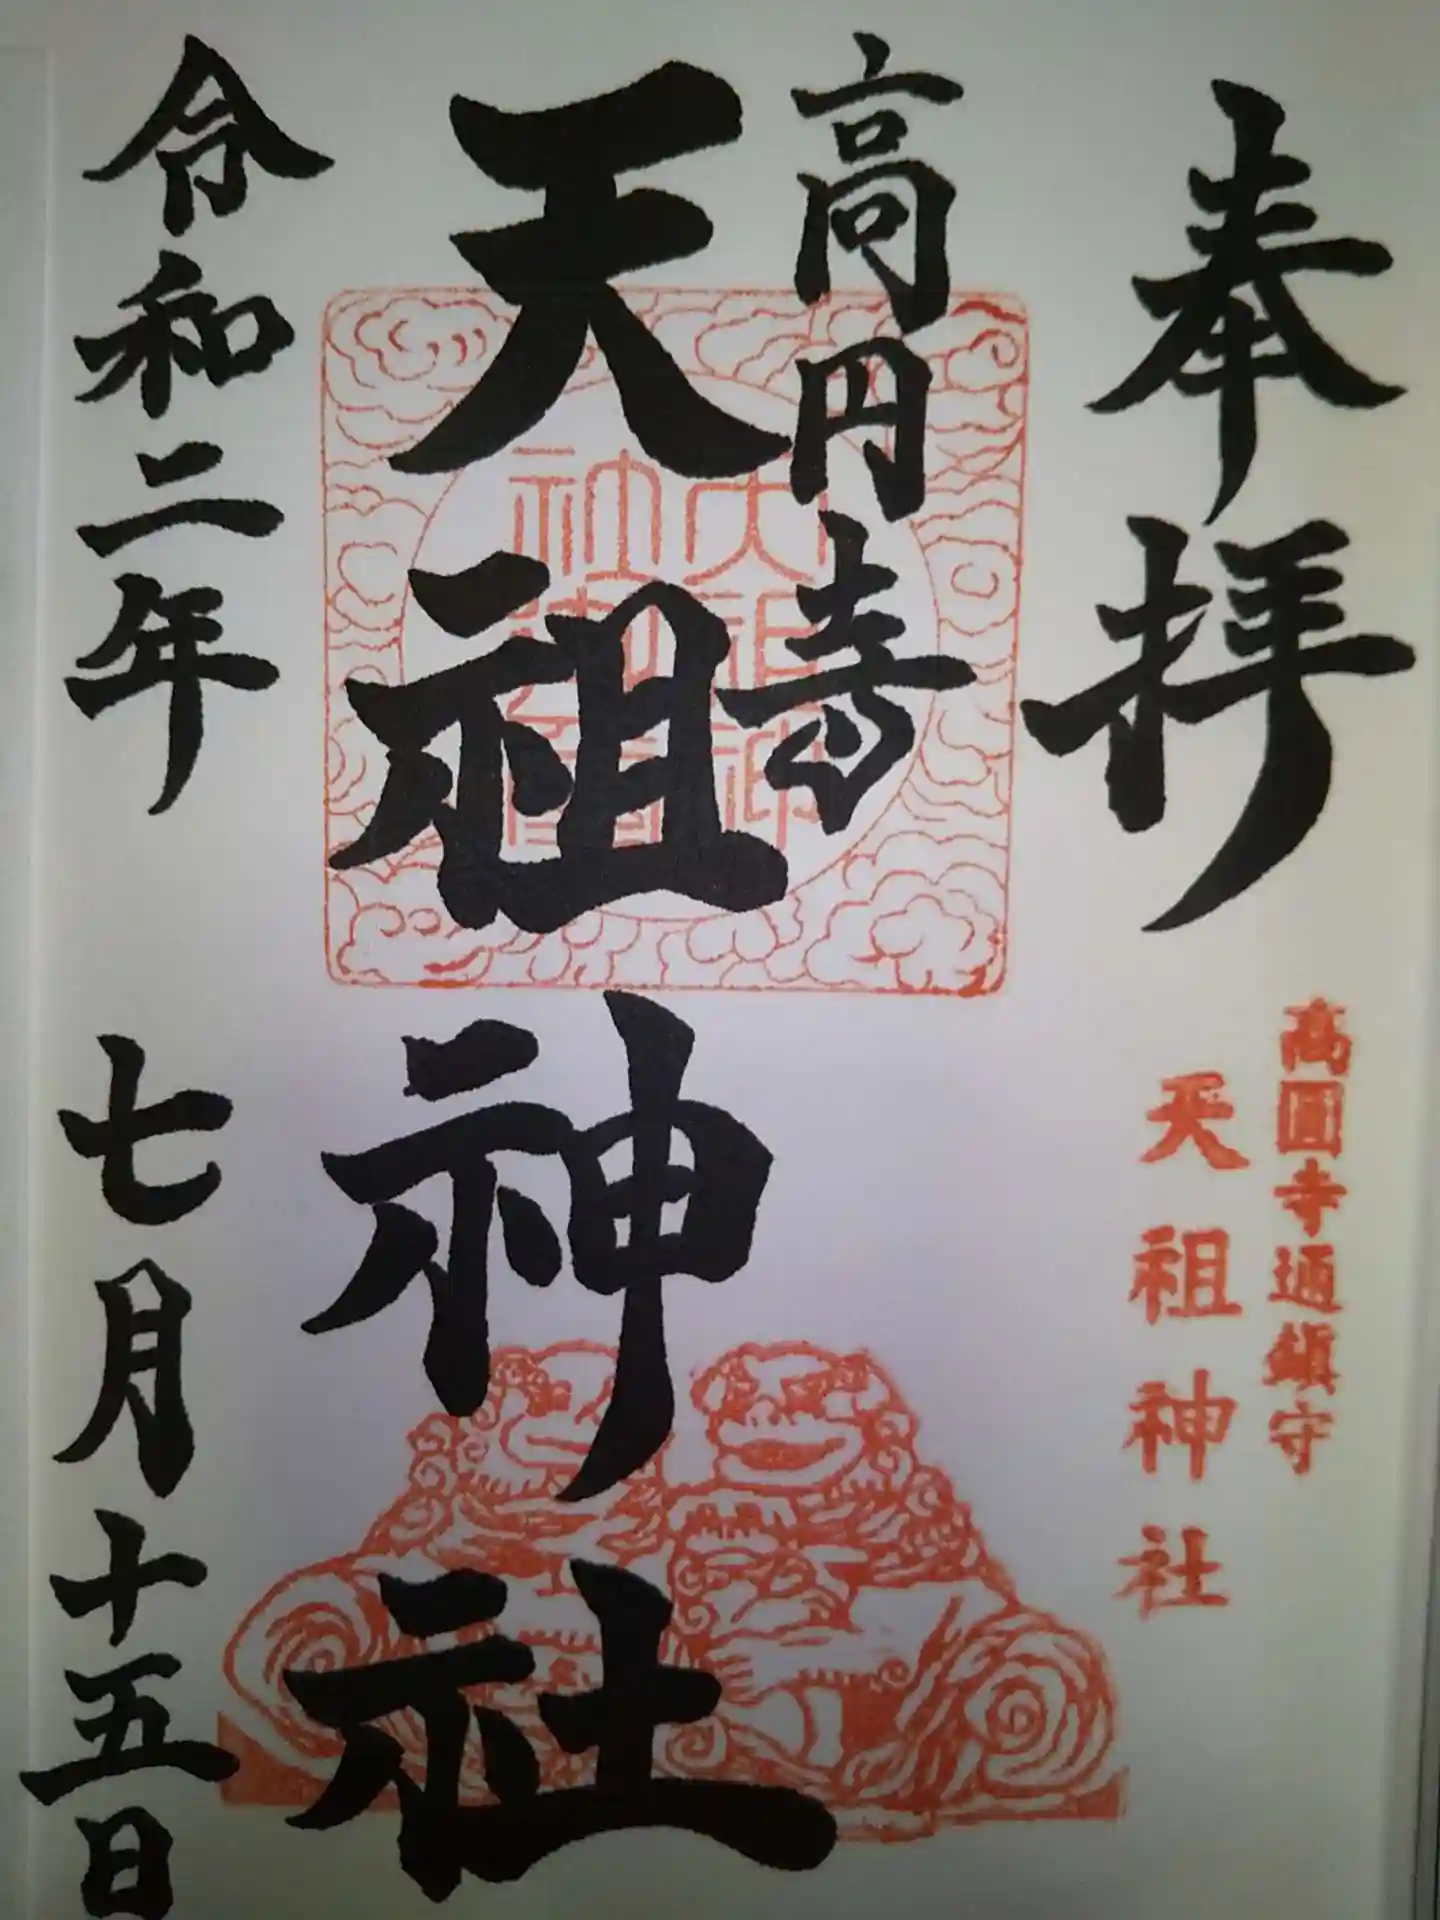 奉拝
高圓寺通鎮守
天祖神社
高円寺
天祖神社
令和二年 七月十五日